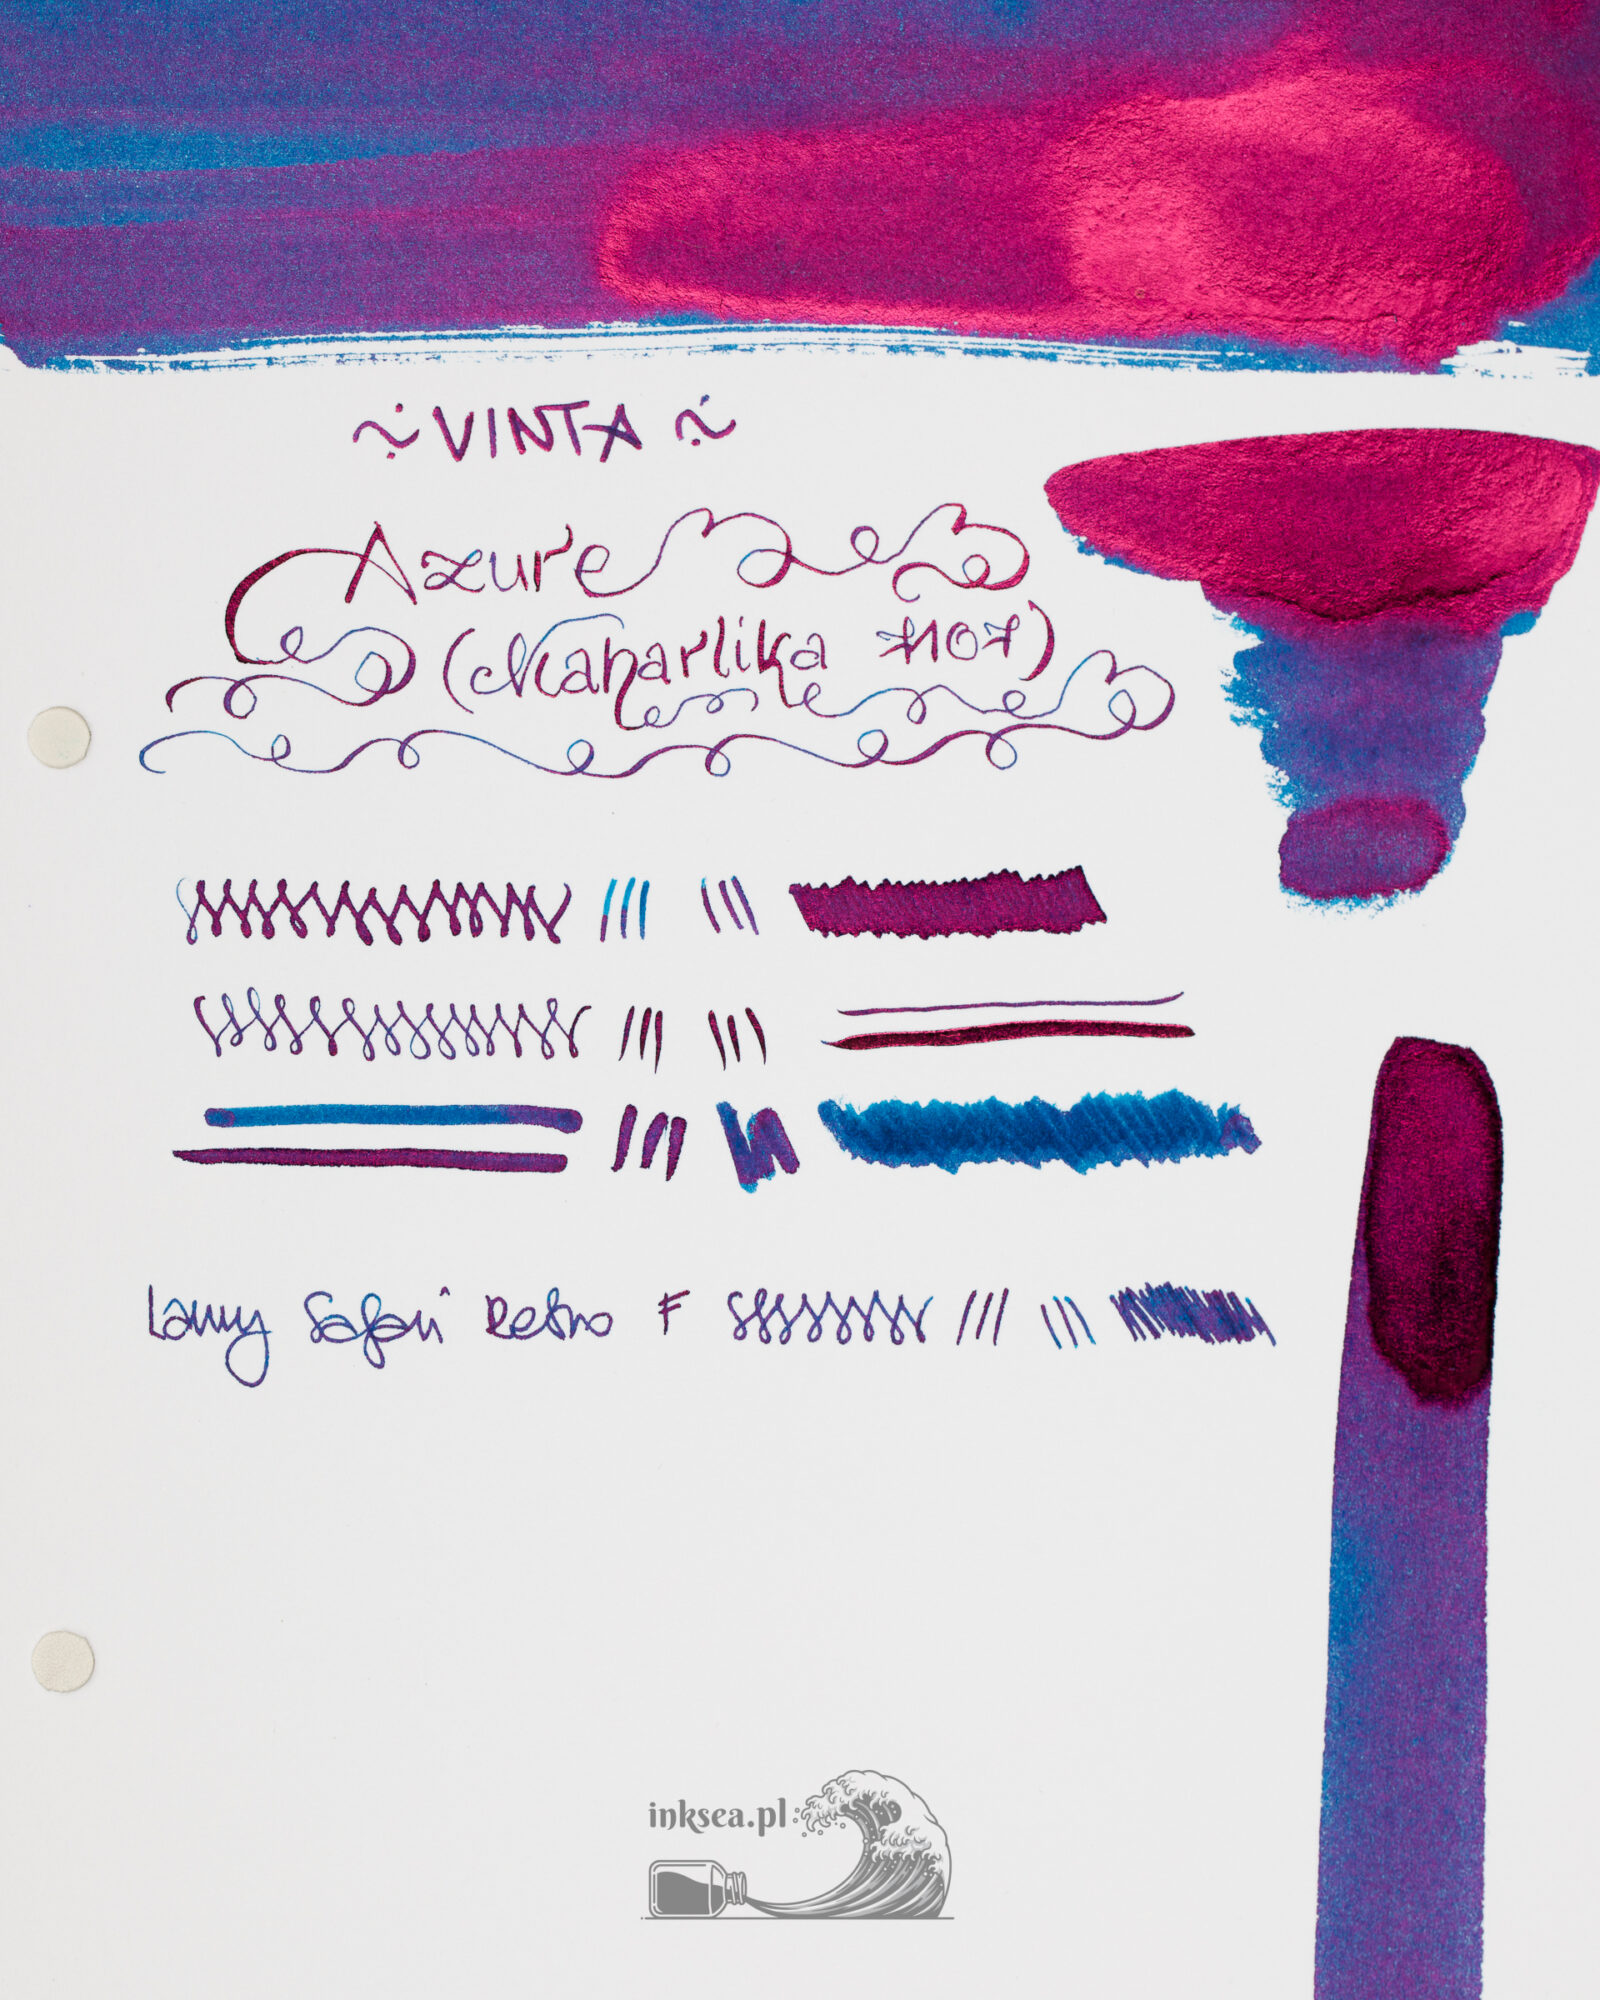 ~ VINTA ~
Azure
(Maharlika 7107)
Lamy Safari Retro F
inksea.pl